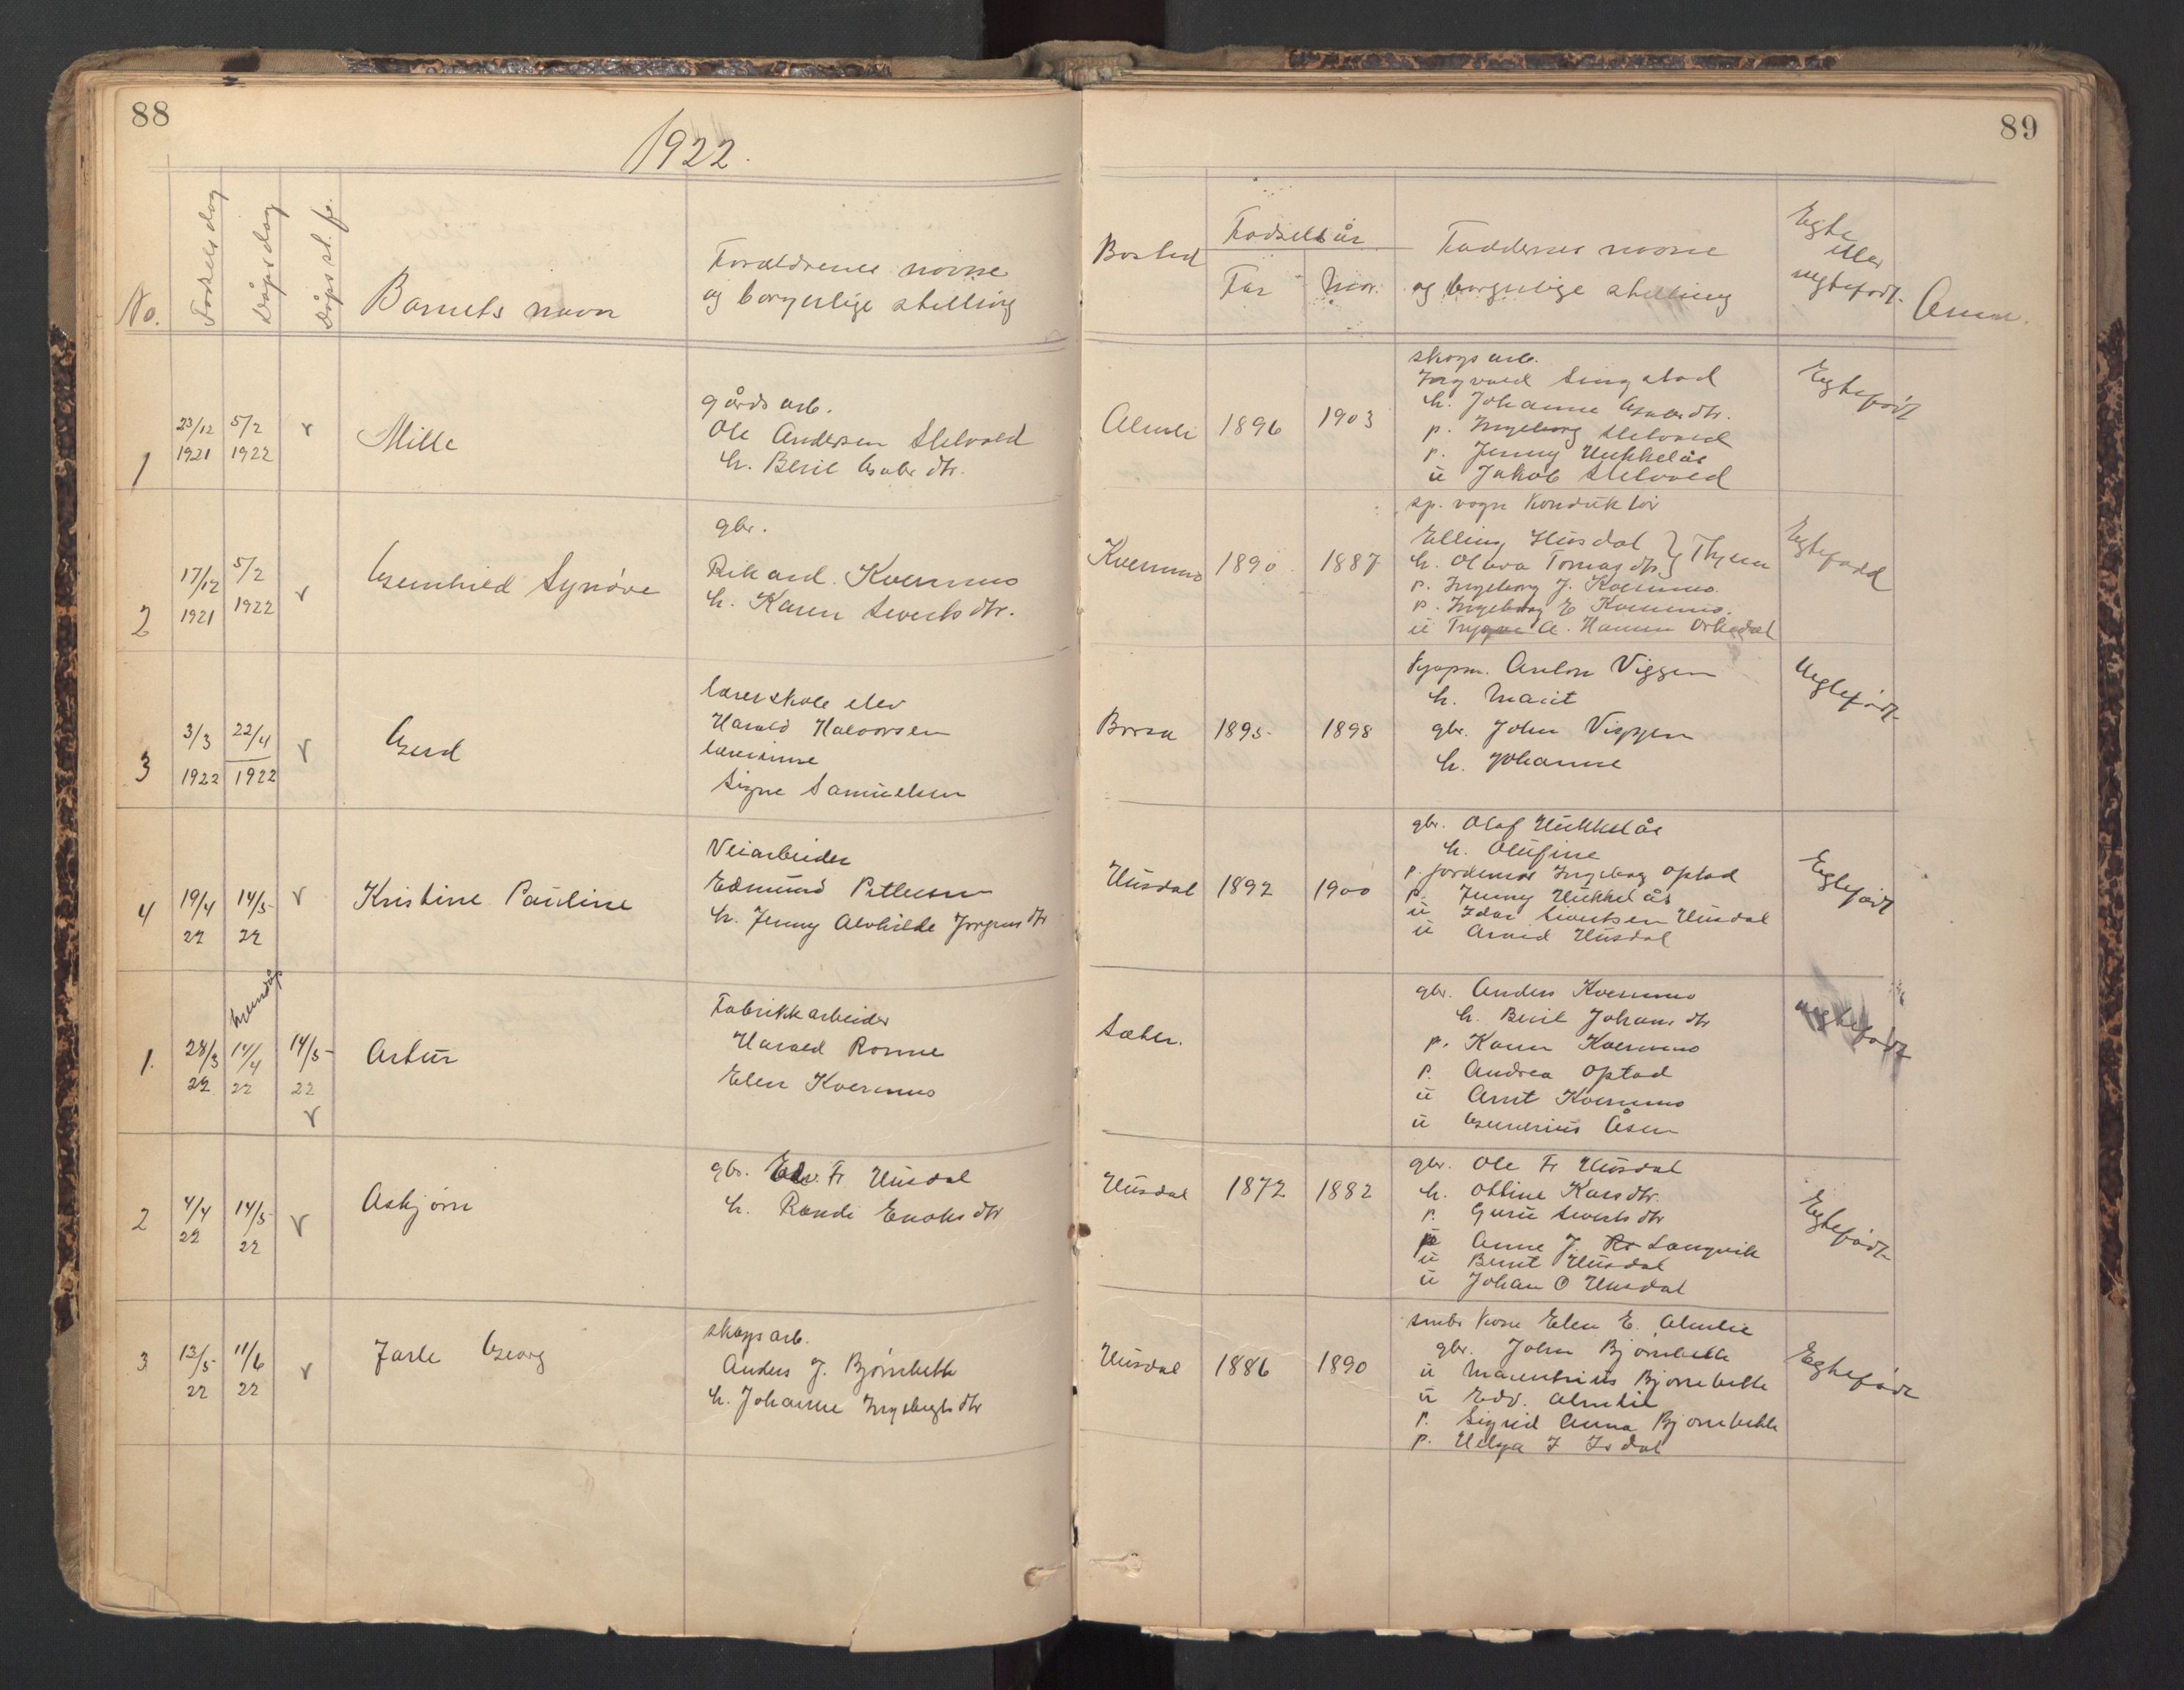 88
1922.
No.
Fødselsdag
Dåpsdag
Dåpsst. fr.
Barnets navn
Foreldrenes navne
og borgerlige stilling
1
23/12
1921
5/2
1922
v
Mille
gårdsarb.
Ole Andersen Stelvold
h. Beril
2
17/12
1921
5/2
1922
v
Gunhild Synöve
gbr.
Rikard. Kvernmo
h. Karen Siverts dtr.
3
3/3
1922
22/4
1922
v
Gerd
lærerskole elev
Harald Halvorsen
lærerinne
Signe Samuelsen
4
19/4
22
14/5
22
v
Kristine Pauline
Veiarbeider
Edmund Pettersen
h. Jenny Alvhilde Jørgens dtr
1.
28/3
22
hjemdåp
14/4
22
14/5
22
v
Artur
Fabrikkarbeider
Harald Rønne
Elen Kvernmo
2
4/4
22
14/5
22
v
Asbjørn
gbr. Edv. Fr. Husdal
h. Randi Enoks dtr
3
13/5
22
11/6
22
v
Jarle Georg
skogsarb.
Anders J. Bjørnbekk
h. Johanne Ingebrigts dtr
89
Bosted
Fødselsår
Far
Mor.
Faddernes navne
og borgerlige stilling
Egte
eller
uegtefødt.
Anm.
Almli
1896
1903
skogsarb.
Ingvald Singstad
h. Johanne
p. Ingeborg Stelvold
p. Jenny Hukkelås
u Jakob Stelvold
Egtefødt
Kvernmo
1890
1887
sp. vogn konduktör
Elling Husdal } Thjem
h. Olava Tomas dtr.
p. Ingeborg J. Kvernmo.
p. Ingeborg E Kvernmo.
u Trygve A. Hansen Orkedal
Egtefødd
Børsa
1895
1898
Anton Viggen
h. Marit
gbr. John Viggen
h. Johanne
Uegtefødt
Husdal
1892
1900
gbr. Olaf Hukkelås
h. Olufine
p. jordemor Ingeborg Opstad
p. Jenny Hukkelås
u Idar Sivertsen Husdal
u Arvid Husdal
Egtefødt
Sæter.
gbr. Anders Kvernmo
h. Beril Johans dtr
p. Karen Kvernmo
p. Andrea Opstad
u Arnt Kvernmo
u Gunerius Åsen
uegtefødt
Husdal
1872
1882
gbr. Ole Fr Husdal
h. Oline Lars dtr.
p. Guru Siverts dtr
p Anne J. Langvik
u Bernt Husdal
u Johan O Husdal
Egtefødt
Husdal
1886
1890
småbr. kone Elen E. Almlie
gbr. John Bjørnbekk
u Mauritius Bjørnbekk
u Edv. Almlie
p. Sigrid Anna Bjørnbekk
p. Helga J Isdal
Egtefødt